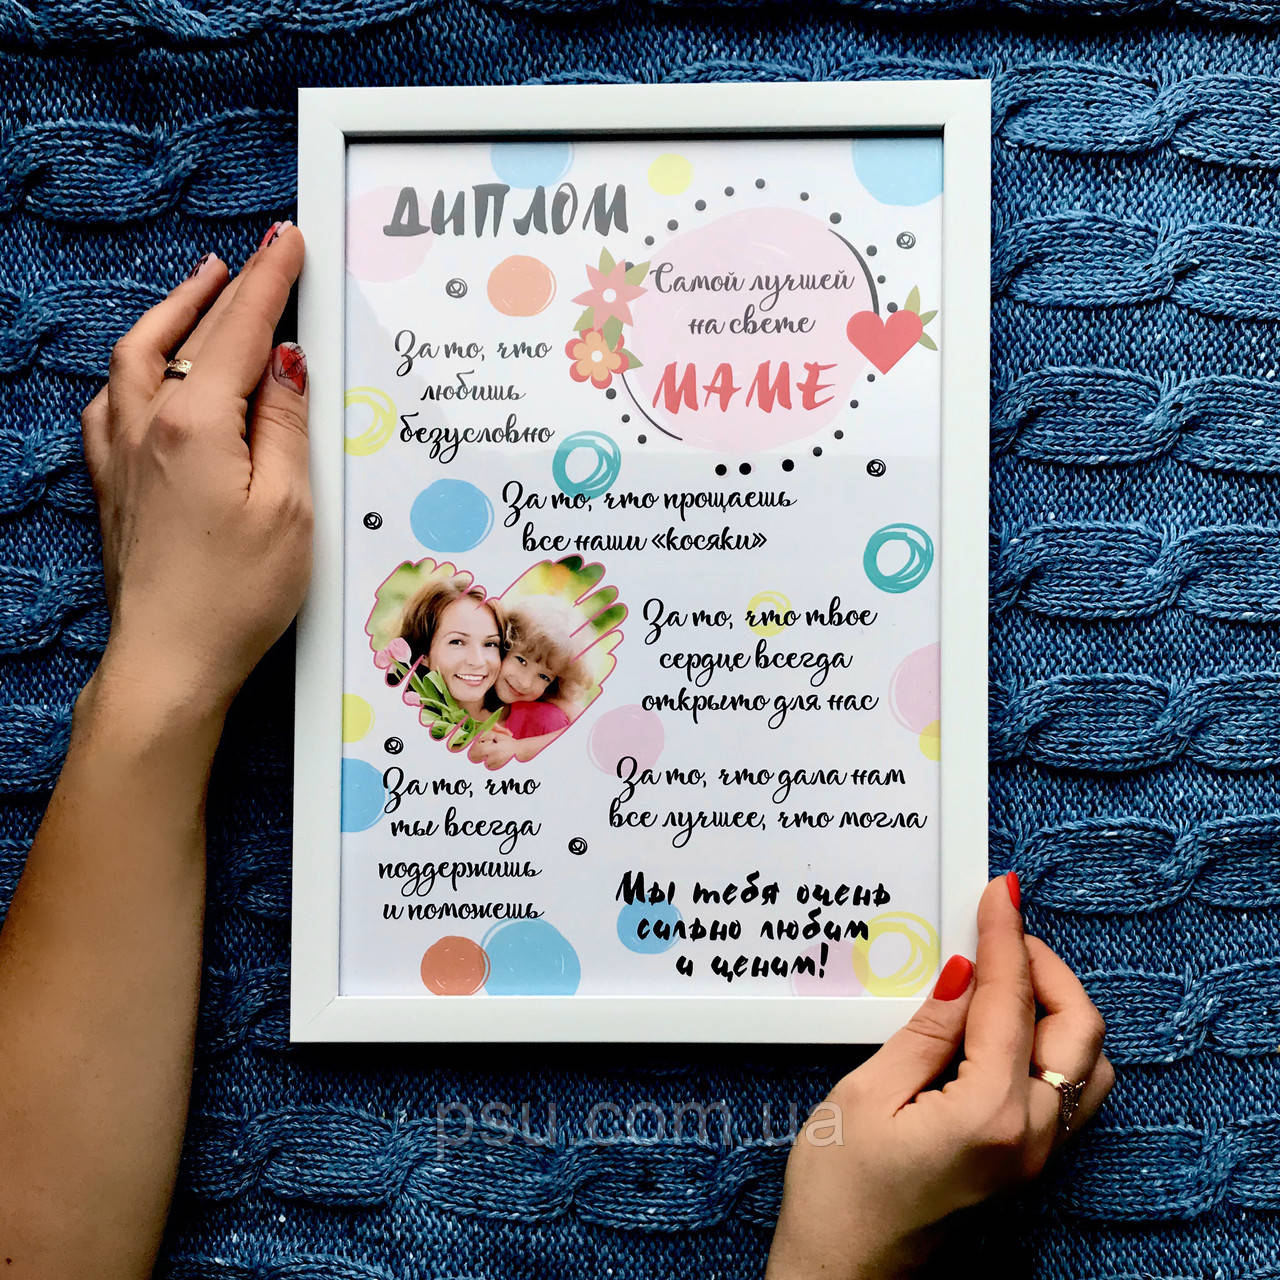 ДИПЛОМ
Самой лучшей
на свете
МАМЕ
За то, что
любишь
безусловно
За то, что прощаешь
все наши «косяки»
За то, что твое
сердце всегда
открыто для нас
За то, что
ты всегда
поддержишь
и поможешь
За то, что дала нам
все лучшее, что могла
Мы тебя очень
сильно любим
и ценим!
psu.com.ua